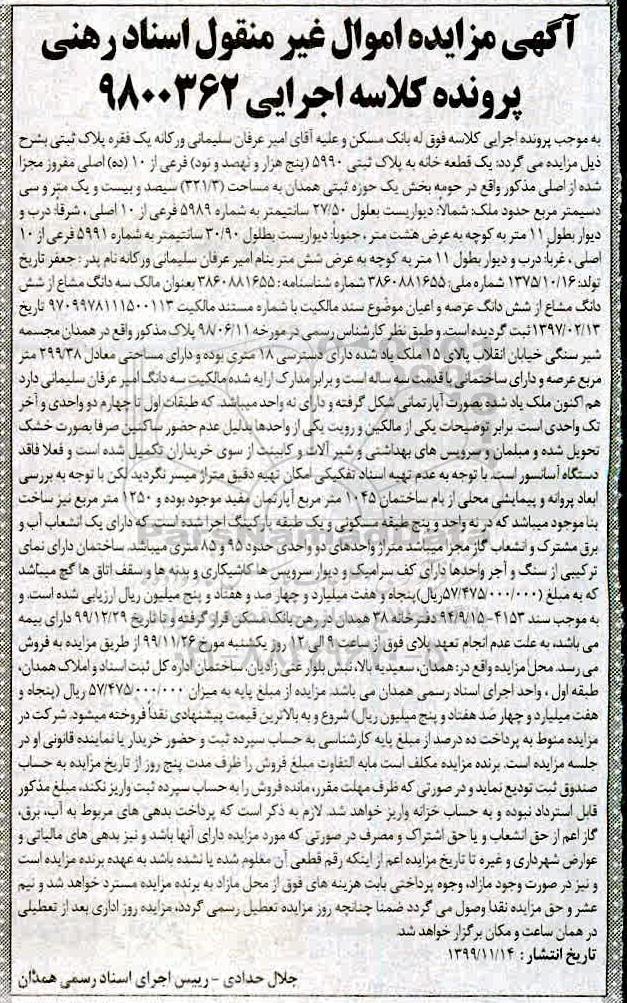 آگهی مزایده اموال غیر منقول اسناد رهنی
پرونده کلاسه اجرایی ۹۸۰۰۳۶۲
به موجب پرونده اجرایی کلاسه فوق له بانک مسکن و علیه آقای امیر عرفان سلیمانی ورکانه یک فقره پلاک ثبتی بشرح
ذیل مزایده می گردد: یک قطعه خانه به پلاک ثبتی ۵۹۹۰ (پنج هزار و نهصد و نود) فرعی از ۱۰ (ده) اصلی مفروز مجزا
شده از اصلی مذکور واقع در حومه بخش یک حوزه ثبتی همدان به مساحت (۳۲۱/۳) سیصد و بیست و یک متر و سی
دسیمتر مربع حدود ملک: شمالاً: دیواریست بعلول ۲۷/۵۰ سانتیمتر به شماره ۵۹۸۹ فرعی از ۱۰ اصلی ، شرقاً: درب و
دیوار بطول ۱۱ متر به کوچه به عرض هشت متر ، جنوباً: دیواریست بطلول ۳۰/۹۰ سانتیمتر به شماره ۵۹۹۱ فرعی از ۱۰
اصلی ، غرباً: درب و دیوار بطول ۱۱ متر به کوچه به عرض شش متر بنام امیر عرفان سلیمانی ورکانه نام پدر : جعفر تاریخ
تولد: ۱۳۷۵/۱۰/۱۶ شماره ملی: ۳۸۶۰۸۸۱۶۵۵ شماره شناسنامه: ۳۸۶۰۸۸۱۶۵۵ بعنوان مالک سه دانگ مشاع از شش
دانگ مشاع از شش دانگ عرصه و اعیان موضوع سند مالکیت با شماره مستند مالکیت ۹۷۰۹۹۷۸۱۱۱۵۰۰۱۱۳ تاریخ
۱۳۹۷/۰۲/۱۳ ثبت گردیده است. و طبق نظر کارشناس رسمی در مورخه ۹۸/۰۶/۱۱ پلاک مذکور واقع در همدان مجسمه
شیر سنگی خیابان انقلاب بالای ۱۵ ملک یاد شده دارای دسترسی ۱۸ متری بوده و دارای مساحتی معادل ۲۹۹/۳۸ متر
مربع عرصه و دارای ساختمانی با قدمت سه ساله است و برابر مدارک ارایه شده مالکیت سه دانگ امیر عرفان سلیمانی دارد
هم اکنون ملک یاد شده بصورت آپارتمانی شکل گرفته و دارای نه واحد میباشد. که طبقات اول تا چهارم دو واحدی و آخر
تک واحدی است. برابر توضیحات یکی از مالکین و رویت یکی از واحدها بدلیل عدم حضور ساکنین صرفا بصورت خشک
تحویل شده و مبلمان و سرویس های بهداشتی و شیر آلات و کابینت از سوی خریداران تکمیل شده است و فعلا فاقد
دستگاه آسانسور است. با توجه به عدم تهیه اسناد تفکیکی امکان تهیه دقیق متراژ میسر نگردید لکن با توجه به بررسی
ابعاد پروانه و پیمایشی محلی از بام ساختمان ۱۰۴۵ متر مربع آپارتمان مفید موجود بوده و ۱۲۵۰ متر مربع نیز ساخت
بنا موجود میباشد که در نه واحد و پنج طبقه مسکونی و یک طبقه پارکینگ اجرا شده است. که دارای یک انشعاب آب و
برق مشترک و انشعاب گاز مجزا میباشد متراژ واحدهای دو واحدی حدود ۹۵ و ۸۵ متری میباشد. ساختمان دارای نمای
ترکیبی از سنگ و آجر واحدها دارای کف سرامیک و دیوار سرویس ها کاشیکاری و بدنه ها و سقف اتاق ها گچ میباشد
که به مبلغ (۵۷/۴۷۵/۰۰۰/۰۰۰ریال) پنجاه و هفت میلیارد و چهار صد و هفتاد و پنج میلیون ریال ارزیابی شده است. و
به موجب سند ۴۱۵۳-۹۴/۹/۱۵ دفترخانه ۳۸ همدان در رهن بانک مسکن قرار گرفته و تا تاریخ ۹۹/۱۲/۲۹ دارای بیمه
می باشد، به علت عدم انجام تعهد پلای فوق از ساعت ۹ الی ۱۲ روز یکشنبه مورخ ۹۹/۱۱/۲۶ از طریق مزایده به فروش
می رسد. محل مزایده واقع در: همدان، سعیدیه بالا، نبش بلوار غنی زادیان، ساختمان اداره کل ثبت اسناد و املاک همدان،
طبقه اول ، واحد اجرای اسناد رسمی همدان می باشد. مزایده از مبلغ پایه به میزان ۵۷/۴۷۵/۰۰۰/۰۰۰ ریال (پنجاه و
هفت میلیارد و چهار صد هفتاد و پنج میلیون ریال) شروع و به بالاترین قیمت پیشنهادی نقداً فروخته میشود. شرکت در
مزایده منوط به پرداخت ده درصد از مبلغ پایه کارشناسی به حساب سپرده ثبت و حضور خریدار یا نماینده قانونی او در
جلسه مزایده است. برنده مزایده مکلف است مابه التفاوت مبلغ فروش را ظرف مدت پنج روز از تاریخ مزایده به حساب
صندوق ثبت تودیع نماید و در صورتی که ظرف مهلت مقرر، مانده فروش را به حساب سپرده ثبت واریز نکند، مبلغ مذکور
قابل استرداد نبوده و به حساب خزانه واریز خواهد شد. لازم به ذکر است که پرداخت بدهی های مربوط به آب، برق،
گاز اعم از حق انشعاب و یا حق اشتراک و مصرف در صورتی که مورد مزایده دارای آنها باشد و نیز بدهی های مالیاتی و
عوارض شهرداری و غیره تا تاریخ مزایده اعم از اینکه رقم قطعی آن معلوم شده یا نشده باشد به عهده برنده مزایده است
و نیز در صورت وجود مازاد، وجوه پرداختی بابت هزینه های فوق از محل مازاد به برنده مزایده مسترد خواهد شد و نیم
عشر و حق مزایده نقدا وصول می گردد ضمنا چنانچه روز مزایده تعطیل رسمی گردد، مزایده روز اداری بعد از تعطیلی
در همان ساعت و مکان برگزار خواهد شد.
تاریخ انتشار : ۱۳۹۹/۱۱/۱۴
جلال حدادی - رییس اجرای اسناد رسمی همدان